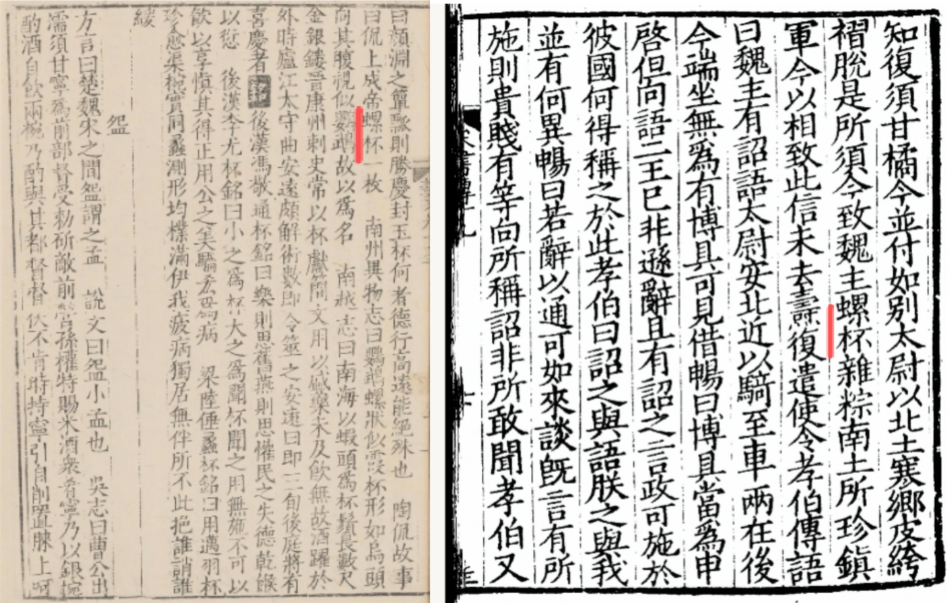 曰顏淵之簞瓢則勝慶封玉杯何者德行高遠能絕殊也 陶侃故事
曰侃上成帝螺杯一枚 南州異物志曰鸚鵡螺狀似霞杯形如鳥頭
向其腹視似鸚鵡故以爲名 南越志曰南海以蝦頭爲杯鬚長數尺
金銀鏤晉康州刺史常以杯獻簡文用以盛藥未及飲無故酒躍於
外時廬江太守曲安遠頗解術數即令筮之安遠曰即三旬後庭將有
喜慶者銘後漢馮敬通杯銘曰樂則思舊燕則思懽民之失德乾餱
以愆 後漢李尤杯銘曰小之爲杯大之爲閜杯閜之用無施不可以
飲以享慎其得正用公之美驕宏爲病 梁陸倕蠡杯銘曰用邁羽杯
珍愈渠椀實同蠡測形均樸滿伊我疲病獨居無伴所不此挹誰誚誰
緩
盌
方言曰楚魏宋之間盌謂之盂 說文曰盌小盂也 吳志曰曹公出
濡須甘寧爲前部督受勅斫敵前營孫權特賜米酒衆肴寧乃以銀椀
酌酒自飲兩椀乃酌與其都督督伏不肯時持寧引自削置膝上呵
知復須甘橘今並付如别太尉以北土寒鄉皮絝
褶脫是所須今致魏主螺杯雜粽南土所珍鎮
軍今以相致此信未去燾復遣使令孝伯傳語
曰魏主有詔語太尉安北近以騎至車兩在後
今端坐無爲有博具可見借暢曰博具當爲申
啓但向語二王已非遜辭且有詔之言政可施於
彼國何得稱之於此孝伯曰詔之與語朕之與我
並有何異暢曰若辭以通可如來談既言有所
施則貴賤有等向所稱詔非所敢聞孝伯又